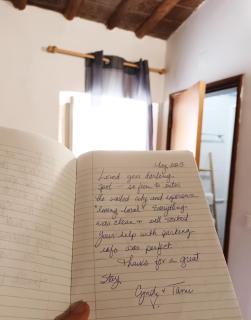 May 2023
Loved your darling
spot — so fun to enter
the walled city and experience
"living local". Everything
was clean & well stocked
Your help with parking
info was perfect
Thanks for a great
stay,
Cyndy &